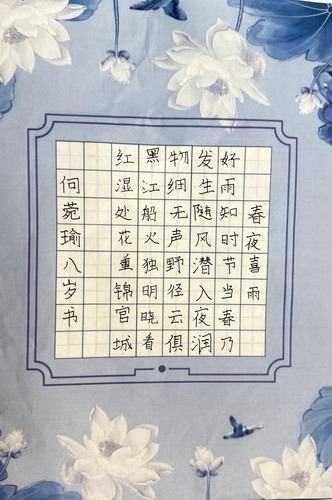 春夜喜雨
好雨知时节当春乃
发生随风潜入夜润
物细无声野径云俱
黑江船火独明晓看
红湿处花重锦官城
何菀瑜八岁书